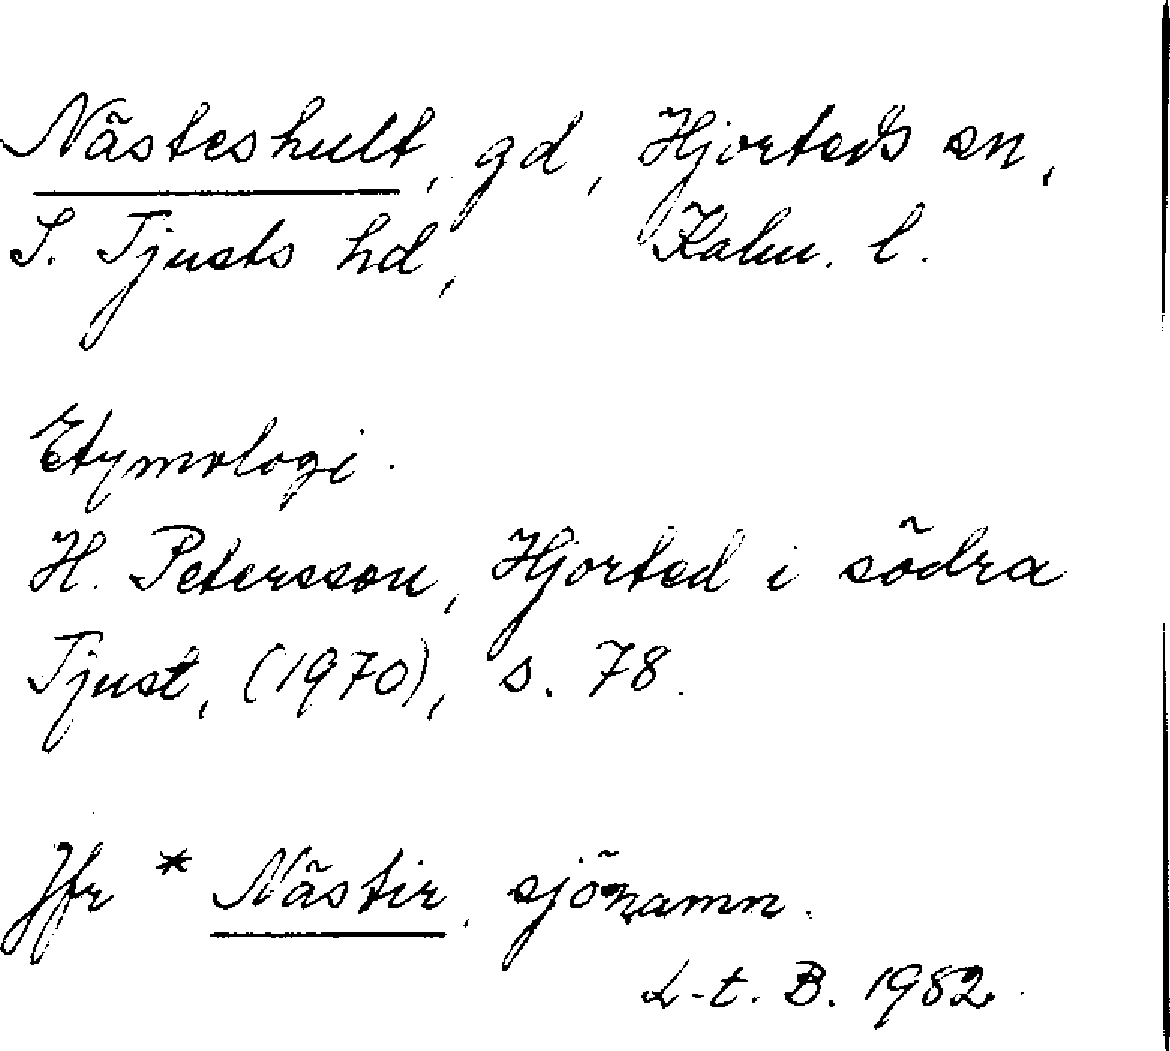 Nästeshult, gd, Hjorteds sn,
S. Tjusts hd, Kalm. l.
Etymologi.
H. Petersson, Hjorted i södra
Tjust, (1970), s. 78.
Jfr * Nästir, sjönamn.
L-t. B. 1982.